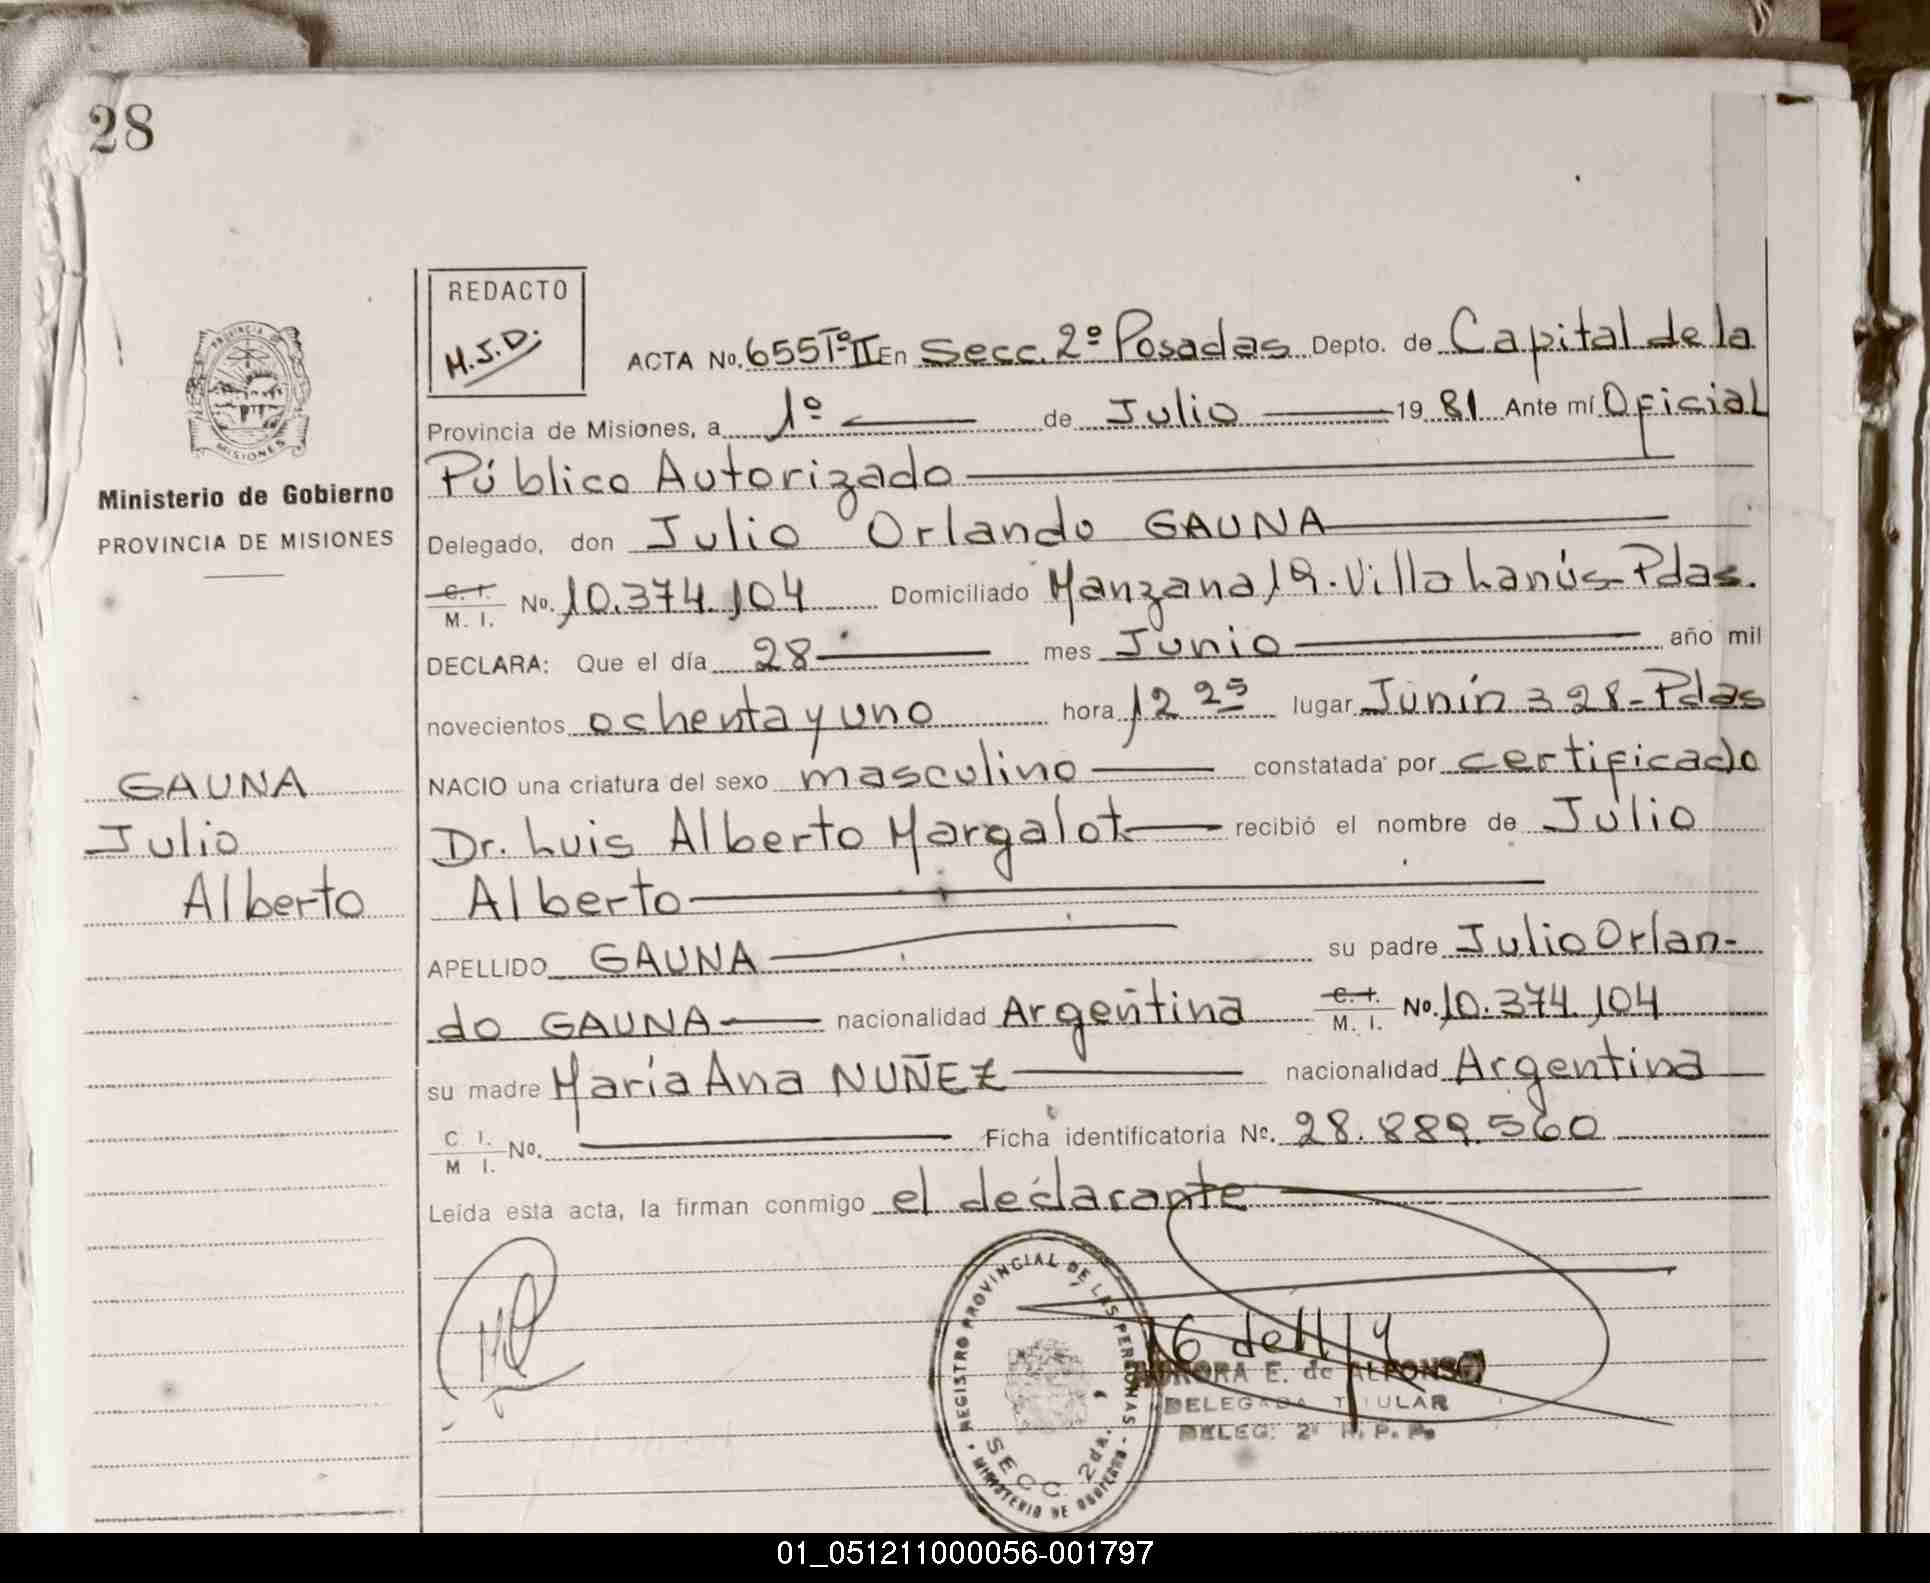 28
REDACTO
M.J.D.
ACTA No. 655 Tº II En Secc. 2º Posadas Depto. de Capital de la
Provincia de Misiones, a 1º de Julio 19 81 Ante mí Oficial
Público Autorizado
Delegado, don Julio Orlando GAUNA
C. I.
M. I. No. 10.374.104 Domiciliado Manzana 19. Villa Lanús - Pdas.
DECLARA: Que el día 28 mes Junio año mil
novecientos ochenta y uno hora 12 25 lugar Junín 328 - Pdas
NACIO una criatura del sexo masculino constatada por certificado
Dr. Luis Alberto Margalot recibió el nombre de Julio
Alberto
APELLIDO GAUNA su padre Julio Orlan-
do GAUNA nacionalidad Argentina C. I. M. I. No. 10.374.104
su madre María Ana NUÑEZ nacionalidad Argentina
C I.
M I. No. Ficha identificatoria Nº. 28.889.560
Leída esta acta, la firman conmigo el declarante
PROVINCIA DE
MISIONES
Ministerio de Gobierno
PROVINCIA DE MISIONES
GAUNA
Julio
Alberto
REGISTRO PROVINCIAL DE LAS PERSONAS
SECC. 2da.
MINISTERIO DE GOBIERNO
AURORA E. de ALFONSO
DELEGADA TITULAR
DELEG. 2ª R. P. P.
01_051211000056-001797